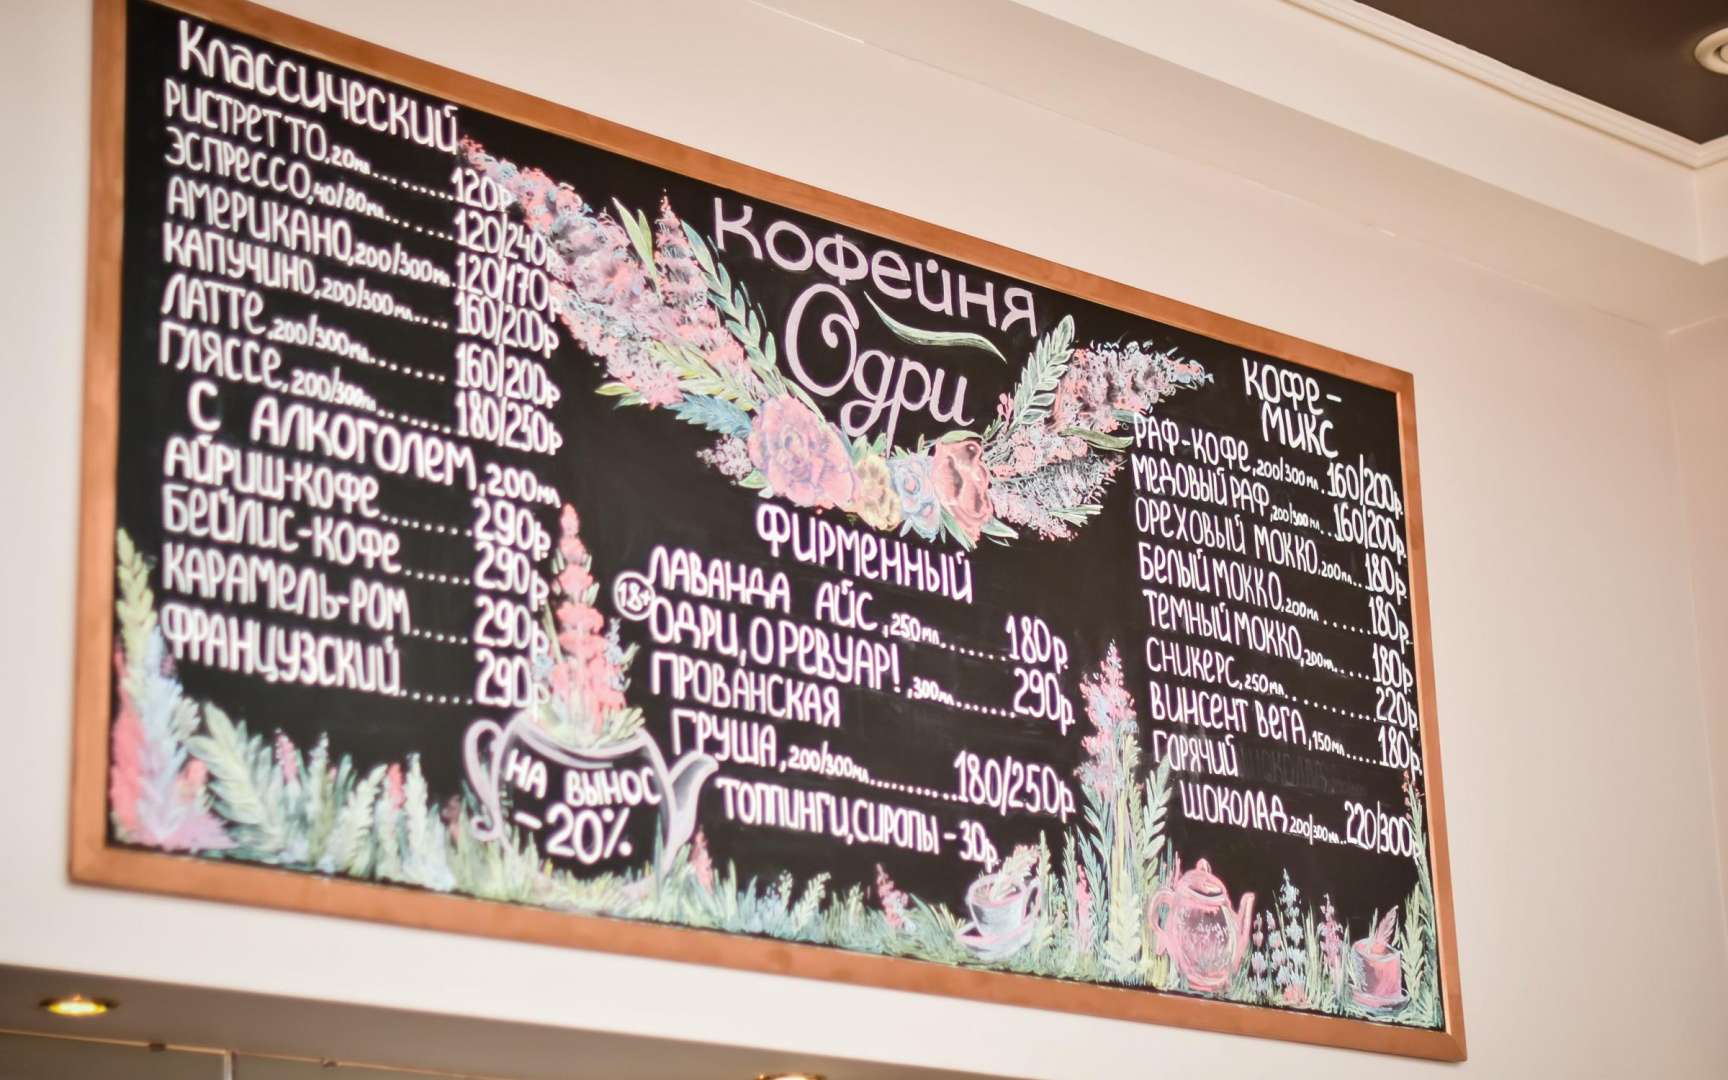 Классический
РИСТРЕТТО,20мл.........120р
ЭСПРЕССО,40/80мл......120/240р
АМЕРИКАНО,200/300мл.120/170р
КАПУЧИНО,200/300мл....160/200р
ЛАТТЕ,200/300мл.......160/200р
ГЛЯССЕ,200/300мл.......180/250р
С АЛКОГОЛЕМ,200мл
АЙРИШ-КОФЕ........290р
БЕЙЛИС-КОФЕ......290р
КАРАМЕЛЬ-РОМ.....290р
ФРАНЦУЗСКИЙ......290р
НА ВЫНОС
-20%
Кофейня
Одри
ФИРМЕННЫЙ
ЛАВАНДА АЙС,250мл.......180р.
18+ ОДРИ,О РЕВУАР!,300мл.......290р.
ПРОВАНСКАЯ
ГРУША,200/300мл..........180/250р
ТОППИНГИ,СИРОПЫ-30р.
КОФЕ-
МИКС
РАФ-КОФЕ,200/300мл.160/200р.
МЕДОВЫЙ РАФ,200/300мл..160/200р.
ОРЕХОВЫЙ МОККО,200мл..180р.
БЕЛЫЙ МОККО,200мл......180р.
ТЕМНЫЙ МОККО,200мл....180р.
СНИКЕРС,250мл...........220р.
ВИНСЕНТ ВЕГА,150мл.....180р.
ГОРЯЧИЙ
ШОКОЛАД200/300мл..220/300р